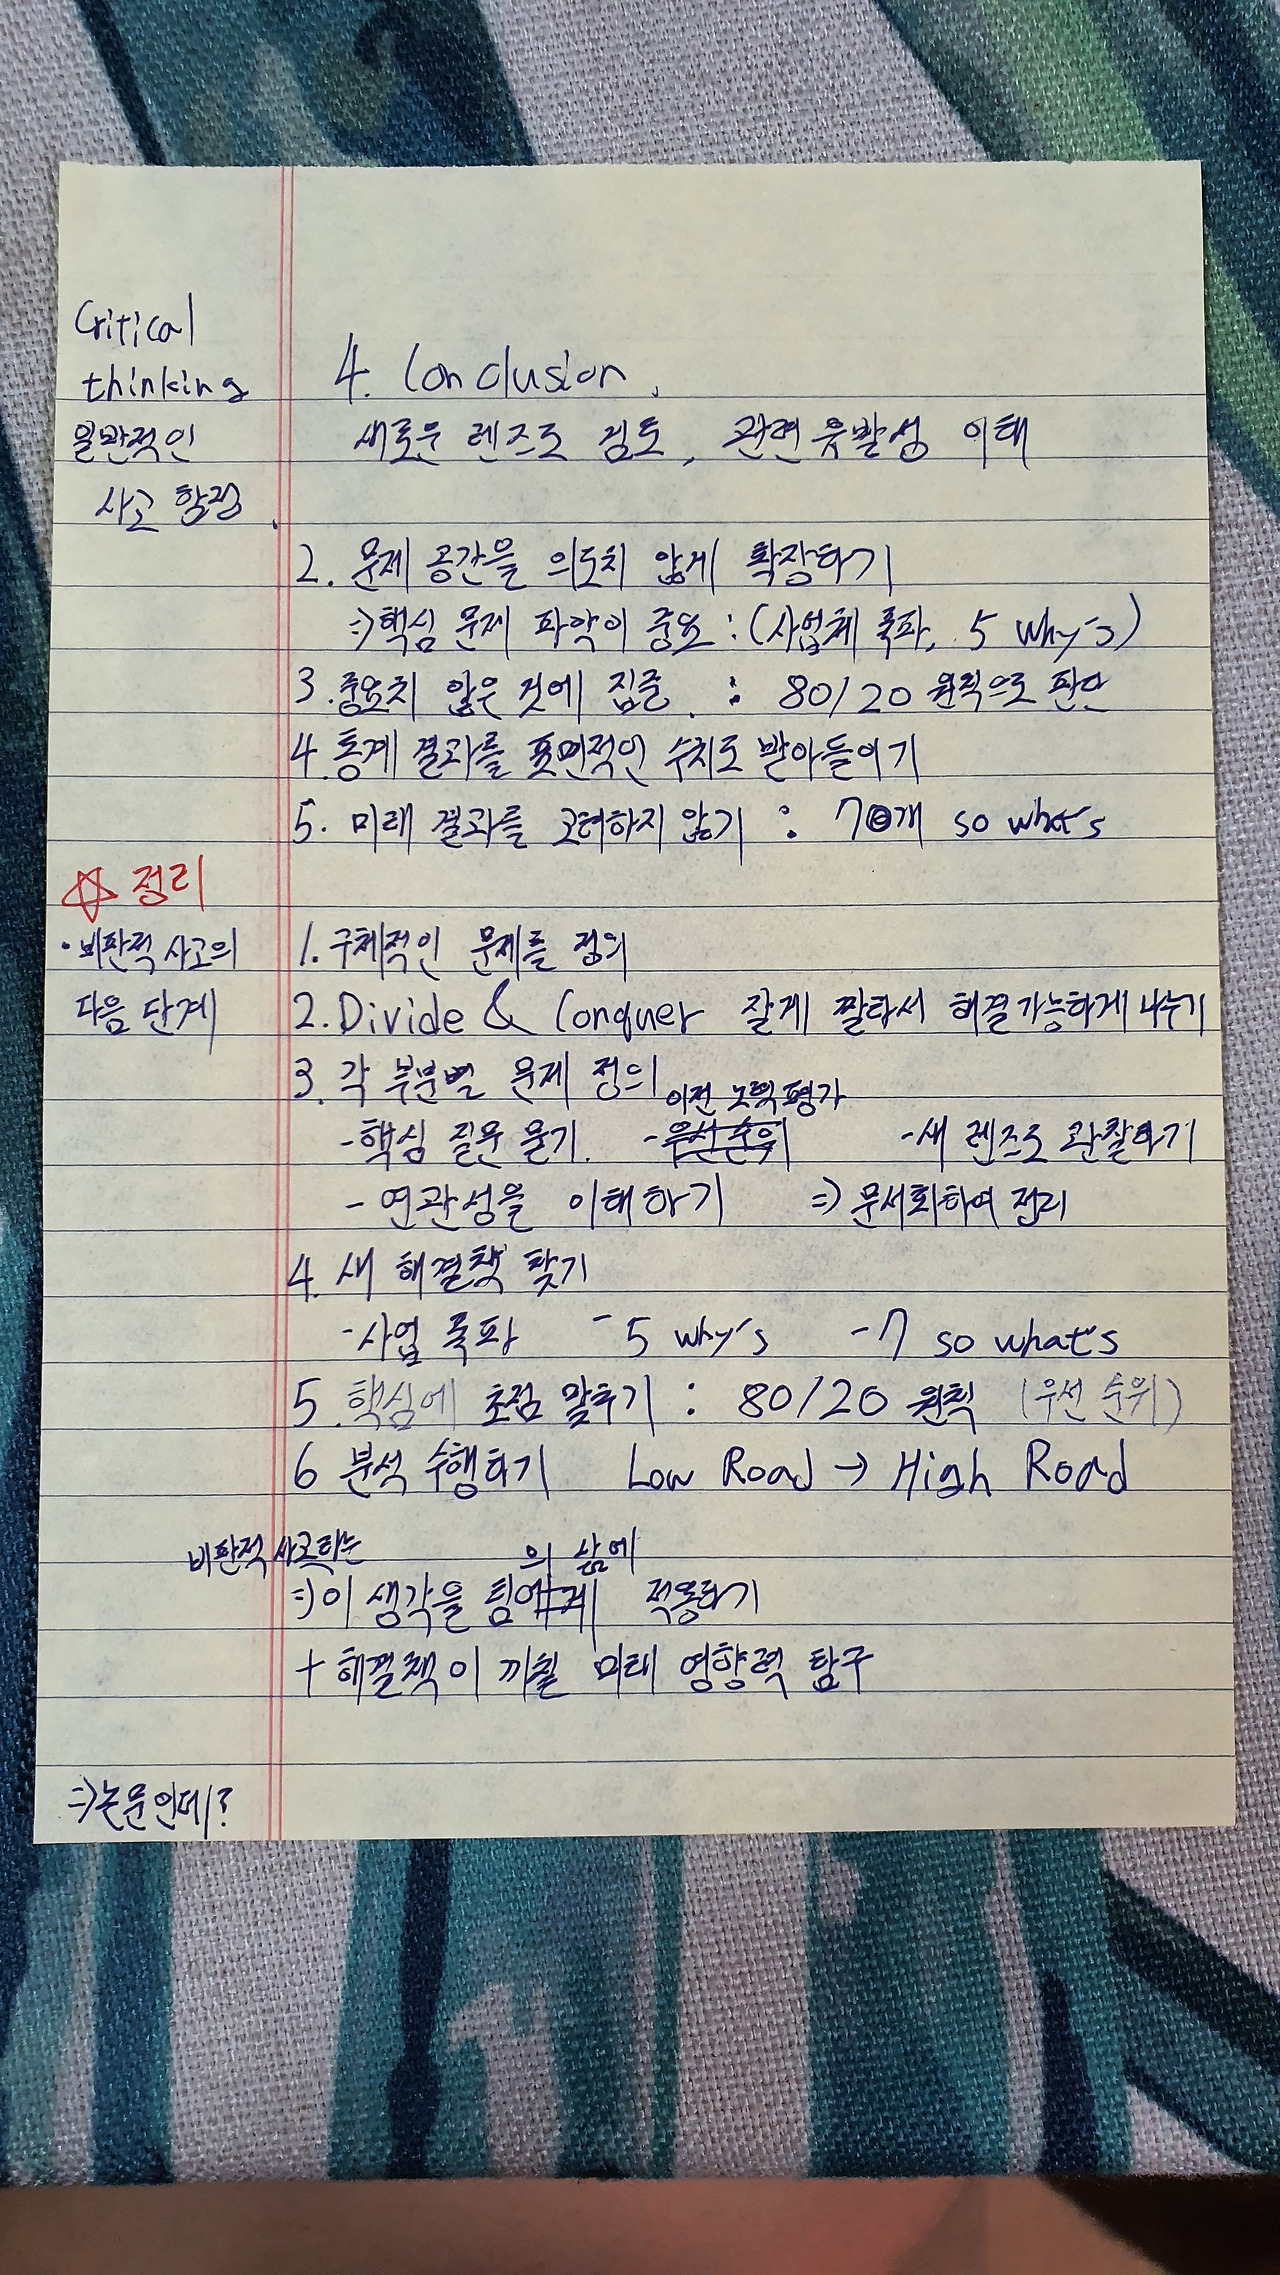 Critical
thinking
일반적인
사고 함정.
4. Conclusion.
새로운 렌즈로 검토, 관련 유발성 이해
2. 문제 공간을 의도치 않게 확장하기
⇒ 핵심 문제 파악이 중요 : (사업체 폭파, 5 why's)
3. 중요치 않은 것에 집중. : 80/20 원칙으로 판단
4. 통계 결과를 표면적인 수치로 받아들이기
5. 미래 결과를 고려하지 않기 : 7개 so what's
☆ 정리
· 비판적 사고의
다음 단계
1. 구체적인 문제를 정의
2. Divide & Conquer 잘게 짤라서 해결가능하게 나누기
3. 각 부분별 문제 정의
이전 노력 평가
- 핵심 질문 묻기. - 우선순위 - 새 렌즈로 관찰하기
- 연관성을 이해하기 ⇒ 문서화하여 정리
4. 새 해결책 찾기
- 사업 폭파 - 5 why's - 7 so what's
5. 핵심에 초점 맞추기 : 80/20 원칙 (우선 순위)
6 분석 수행하기 Low Road → High Road
비판적 사고라는 의 삶에
⇒ 이 생각을 팀에게 적용하기
+ 해결책이 끼칠 미래 영향력 탐구
⇒ 논문인데?